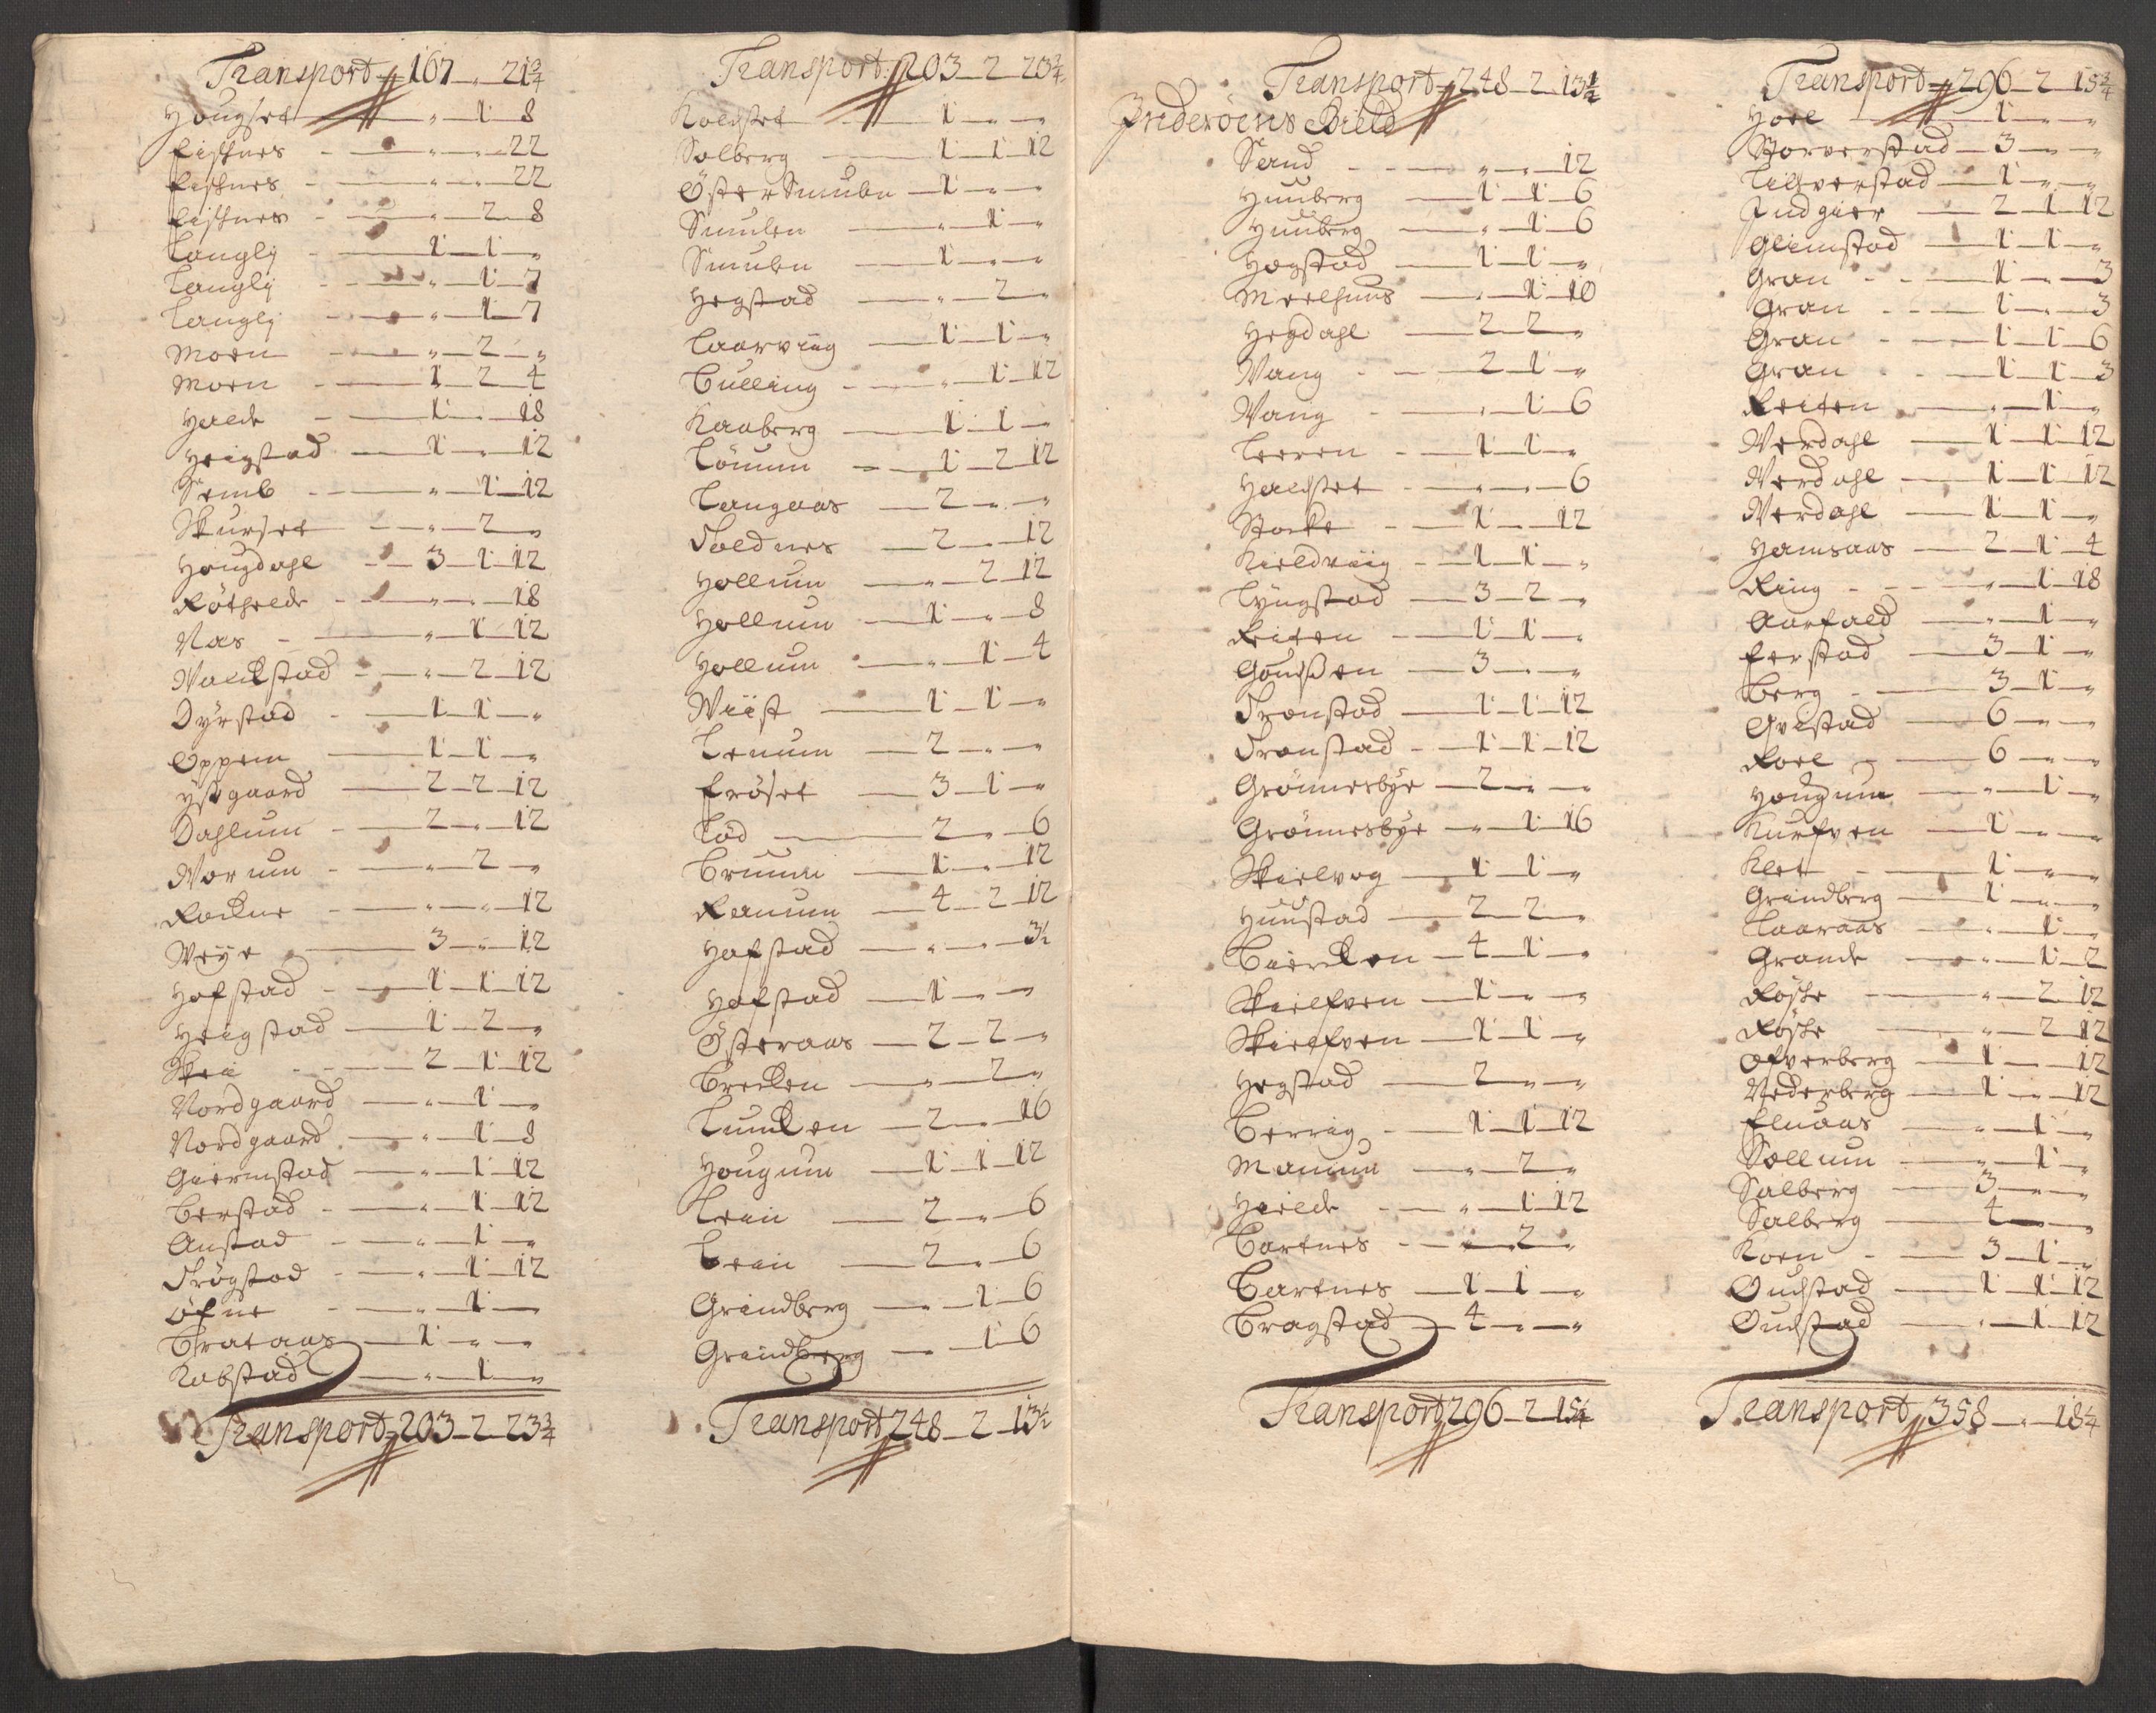 Transport 167 „ 21 3/4
Hougset „ 1 8
Fisknes „ „ 22
Fisknes „ „ 22
Fisknes „ 2 8
Langlj 1 1 „
Langlj „ 1 7
Langlj „ 1 7
Moen „ 2 „
Moen 1 2 4
Halde 1 „ 18
Heigstad 1 „ 12
Semb „ 1 12
Skurset „ 2 „
Hougdahl 3 1 12
Røthelde „ „ 18
Nas „ 1 12
Walckstad „ 2 12
Dyrstad 1 1 „
Oppem 1 1 „
ystgaard 2 2 12
Dahlum 2 „ 12
Worum „ 2 „
Rockne „ „ 12
Weye 3 „ 12
Hofstad 1 1 12
Heigstad 1 2 „
Skei 2 1 12
Nordgaard „ 1 „
Nordgaard „ 1 8
Giermstad „ 1 12
Berstad „ 1 12
Austad „ 1 „
Frøgstad „ 1 12
Øfne „ 1 „
Brataas 1 „ „
Kabstad „ 1 „
Transport 203 2 23 3/4
Transport 203 2 23 3/4
Kolset 1 „ „
Solberg 1 1 12
Øster Smulen 1 „ „
Smulen „ 1 „
Smulen 1 „ „
Hegstad „ 2 „
Laarviig 1 1 „
Bulling „ 1 12
Kaaberg 1 1 „
Lønum 1 2 12
Langaas 2 „ „
Foldnes 2 „ 12
Hollum „ 2 12
Hollum 1 „ 8
Hollum „ 1 4
Wiist 1 1 „
Lenum 2 „ „
Frøset 3 1 „
Lød 2 „ 6
Bruum 1 „ 12
Ranum 4 2 12
Hofstad „ „ 3 1/2
Hofstad 1 „ „
Østeraas 2 2 „
Brecken „ 2 „
Luncken 2 „ 16
Hougum 1 1 12
Lein 2 „ 6
Lein 2 „ 6
Grindberg „ 1 6
Grindberg „ 1 6
Transport 248 2 13 1/2
Transport 248 2 13 1/2
Inderøens Field
Sand „ „ 12
Huuberg 1 1 6
Huuberg „ 1 6
Hogstad 1 1 „
Meelhuus „ 1 10
Hegdahl 2 2 „
Wang 2 1 „
Wang „ 1 6
Leeren 1 1 „
Haldset „ „ 6
Stocke 1 „ 12
Kieldviig 1 1 „
Lyngstad 3 2 „
Reiten 1 1 „
Goudsen 3 „ „
Tronstad 1 1 12
Tronstad 1 1 12
Grønnesbye 2 „ „
Grønnesbye „ 1 16
Skielvog 1 1 „
Huustad 2 2 „
Biercken 4 1 „
Skielfven 1 „ „
Skielfven 1 1 „
Hegstad 2 „ „
Berrig 1 1 12
Mannun „ 2 „
Heilde „ 1 12
Bartnes „ 2 „
Bartnes 1 1 „
Bragstad 4 „ „
Transport 296 2 15 3/4
Transport 296 2 15 3/4
Hoel 1 „ „
Storverstad 3 „ „
Lilverstad 1 „ „
Indgier 2 1 12
Glimstad 1 1 „
Gran 1 „ 3
Gran 1 „ 3
Gran 1 1 6
Gran 1 1 3
Reiten „ 1 „
Werdahl 1 1 12
Werdahl 1 1 12
Werdahl 1 1 „
Hamsaas 2 1 4
Ring „ 1 18
Aarfald „ 1 „
Ferstad 3 1 „
Berg 3 1 „
Qvistad 6 „ „
Roel 6 „ „
Hougum „ 1 „
Kurfven 1 „ „
Klet 1 „ „
Grindberg 1 „ „
Laaraas „ 1 „
Grande „ 1 2
Røske „ 2 12
Røske „ 2 12
Ofverberg 1 „ 12
Nederberg 1 „ 12
Elnaas „ 1 „
Sollum „ 1 „
Salberg 3 „ „
Salberg 4 „ „
Koen 3 1 „
Oudstad 1 1 12
Oudstad „ 1 12
Transport 358 „ 18 1/4